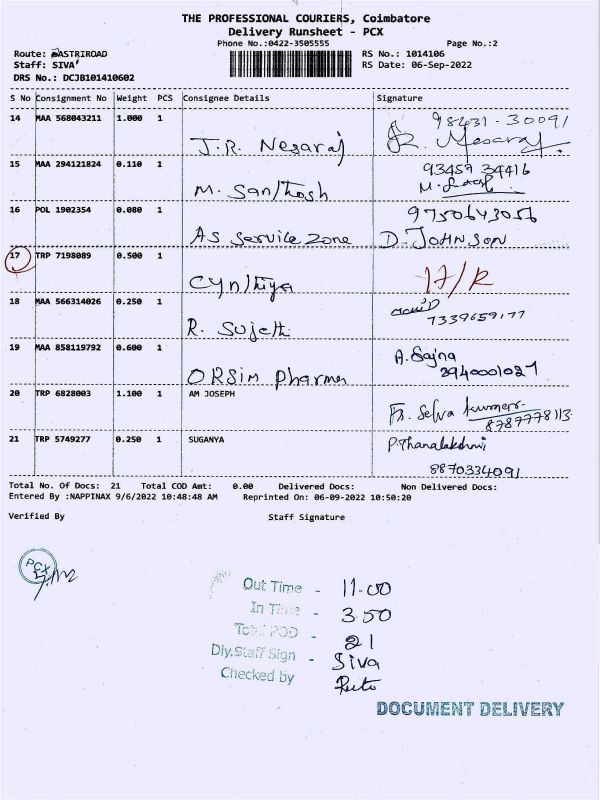 THE PROFESSIONAL COURIERS, Coimbatore
Delivery Runsheet - PCX
Phone No.:0422-3505555 Page No.:2
Route: SASTRIROAD RS No.: 1014106
Staff: SIVA RS Date: 06-Sep-2022
DRS No.: DCJB101410602
S No Consignment No Weight PCS Consignee Details Signature
14 MAA 568043211 1.000 1 98431-30091
J.R. Nesaraj R. Nesaraj
15 MAA 294121824 0.110 1 93459 34416
M. Santhosh
16 POL 1902354 0.080 1 9750643056
AS Service Zone D. JOHNSON
17 TRP 7198089 0.500 1
Cynthiya 17/R
18 MAA 566314026 0.250 1
R. Sujeth 7339659177
19 MAA 858119792 0.600 1 A. Sajna
ORSIM Pharma 2940001027
20 TRP 6828003 1.100 1 AM JOSEPH
Fr. Selva kumar 8787778113
21 TRP 5749277 0.250 1 SUGANYA P. Thanalakshmi
8870334091
Total No. Of Docs: 21 Total COD Amt: 0.00 Delivered Docs: Non Delivered Docs:
Entered By :NAPPINAX 9/6/2022 10:48:48 AM Reprinted On: 06-09-2022 10:50:20
Verified By Staff Signature
PCX
Out Time - 11.00
In Time - 3.50
Total POD - 21
Dly.Staff Sign - Siva
Checked by
DOCUMENT DELIVERY